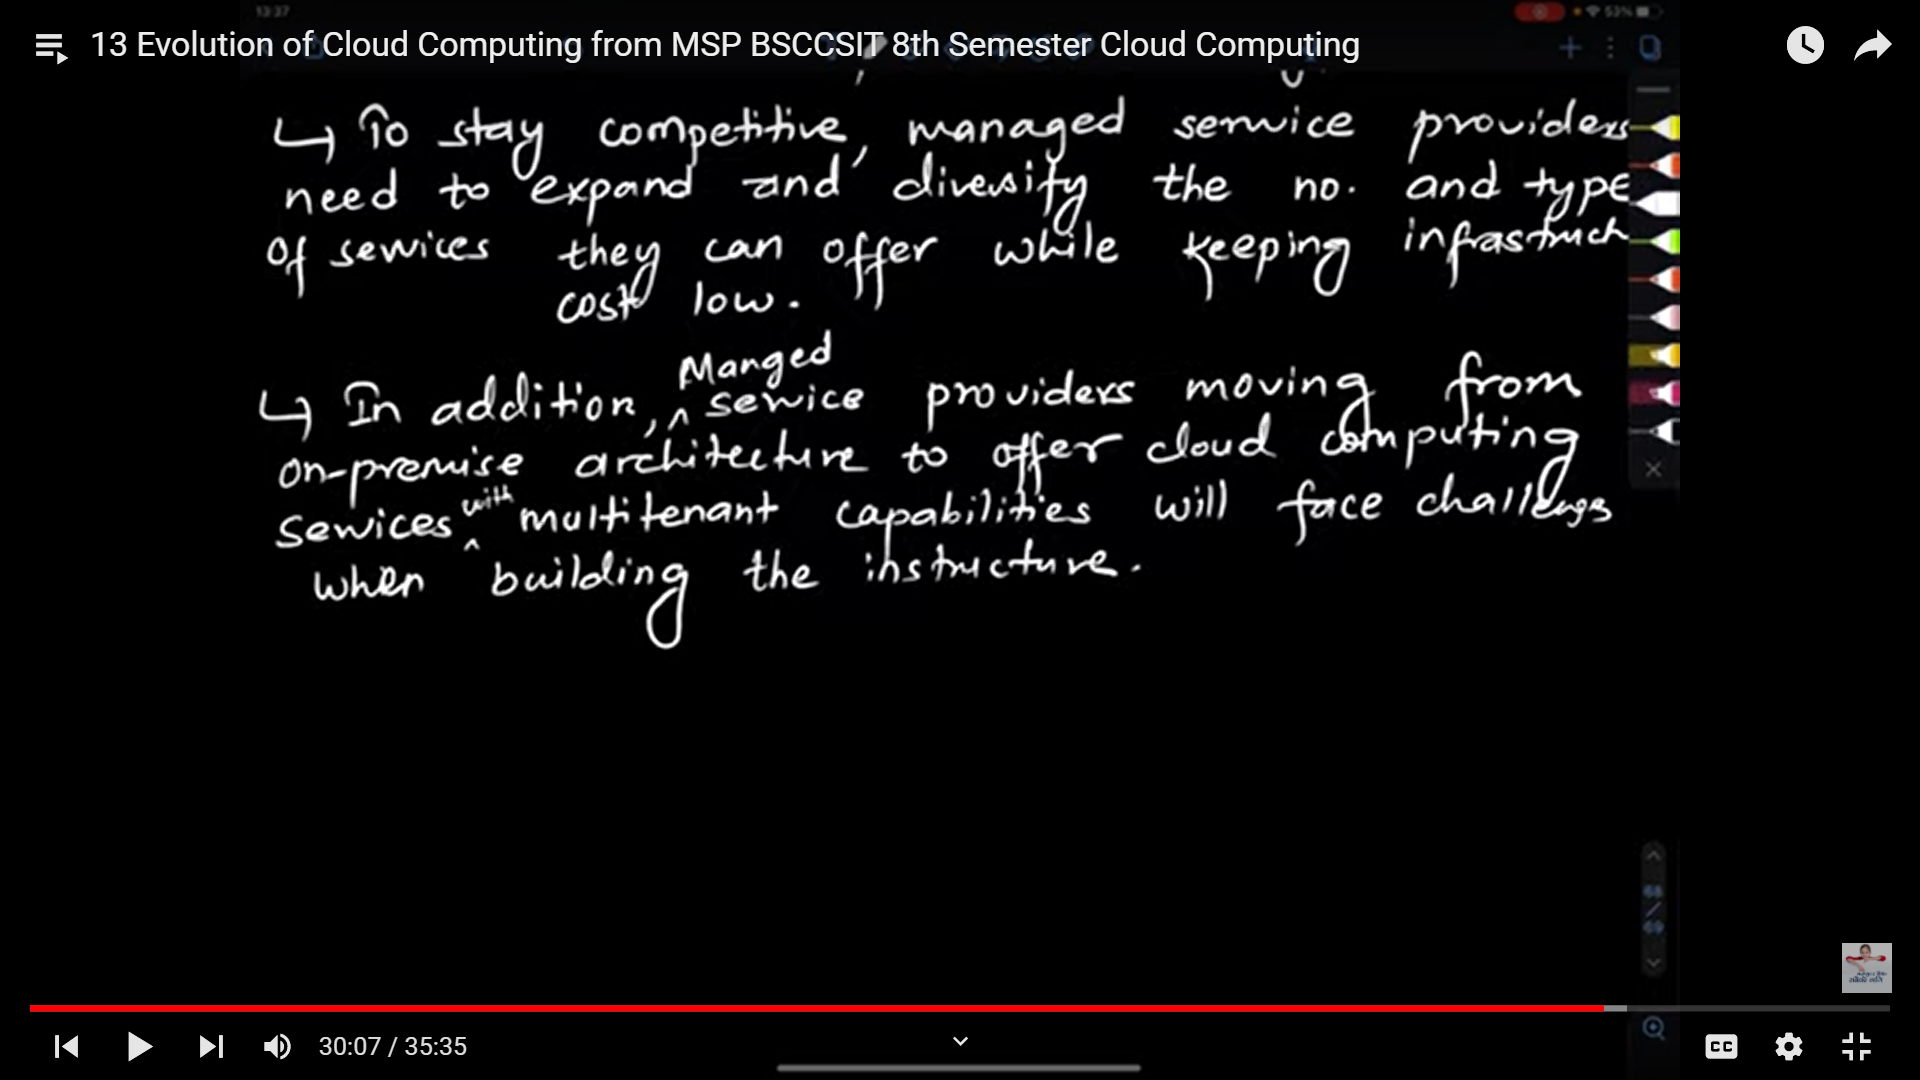 13:37
53%
13 Evolution of Cloud Computing from MSP BSCCSIT 8th Semester Cloud Computing
↳ To stay competitive, managed service providers
need to expand and diversify the no. and type
of services they can offer while keeping infrastruct
cost low.
Manged
↳ In addition, ^ service providers moving from
on-premise architecture to offer cloud computing
services ^ with multitenant capabilities will face challenges
when building the instructure.
68
/
69
30:07 / 35:35
CC